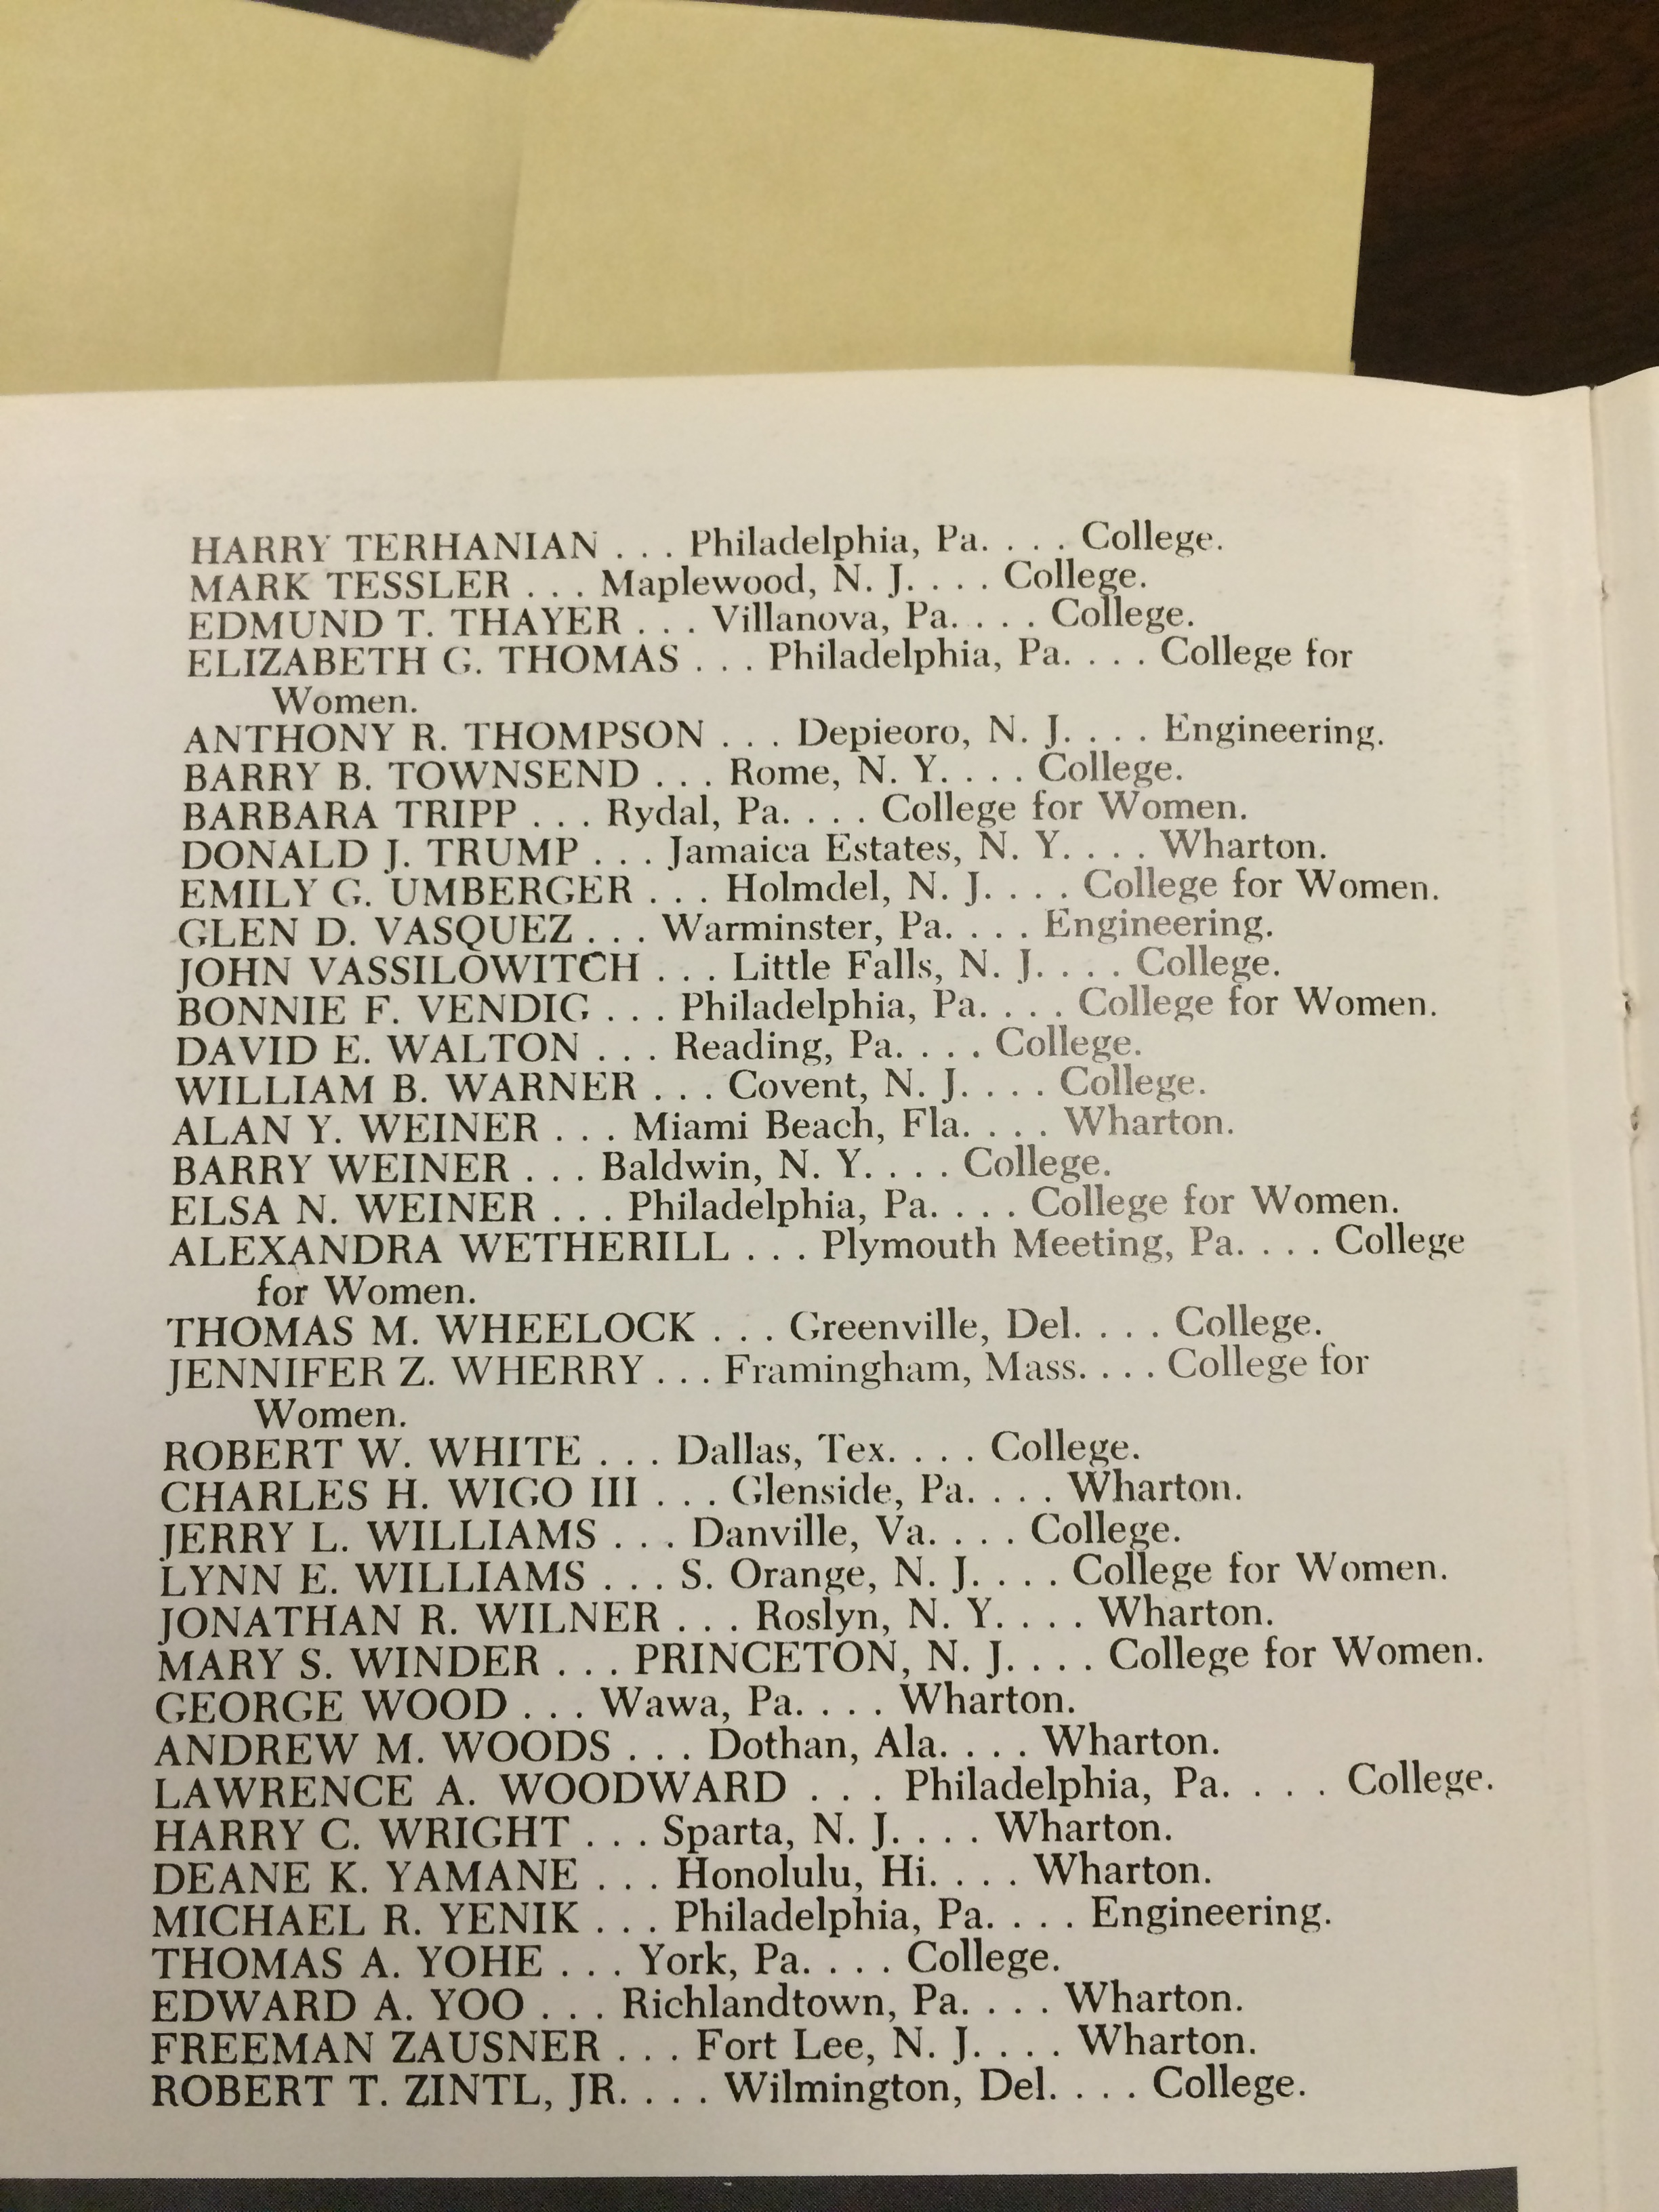 HARRY TERHANIAN . . . Philadelphia, Pa. . . . College.
MARK TESSLER . . . Maplewood, N. J. . . . College.
EDMUND T. THAYER . . . Villanova, Pa. . . . College.
ELIZABETH G. THOMAS . . . Philadelphia, Pa. . . . College for
Women.
ANTHONY R. THOMPSON . . . Depieoro, N. J. . . . Engineering.
BARRY B. TOWNSEND . . . Rome, N. Y. . . . College.
BARBARA TRIPP . . . Rydal, Pa. . . . College for Women.
DONALD J. TRUMP . . . Jamaica Estates, N. Y. . . . Wharton.
EMILY G. UMBERGER . . . Holmdel, N. J. . . . College for Women.
GLEN D. VASQUEZ . . . Warminster, Pa. . . . Engineering.
JOHN VASSILOWITCH . . . Little Falls, N. J. . . . College.
BONNIE F. VENDIG . . . Philadelphia, Pa. . . . College for Women.
DAVID E. WALTON . . . Reading, Pa. . . . College.
WILLIAM B. WARNER . . . Covent, N. J. . . . College.
ALAN Y. WEINER . . . Miami Beach, Fla. . . . Wharton.
BARRY WEINER . . . Baldwin, N. Y. . . . College.
ELSA N. WEINER . . . Philadelphia, Pa. . . . College for Women.
ALEXANDRA WETHERILL . . . Plymouth Meeting, Pa. . . . College
for Women.
THOMAS M. WHEELOCK . . . Greenville, Del. . . . College.
JENNIFER Z. WHERRY . . . Framingham, Mass. . . . College for
Women.
ROBERT W. WHITE . . . Dallas, Tex. . . . College.
CHARLES H. WIGO III . . . Glenside, Pa. . . . Wharton.
JERRY L. WILLIAMS . . . Danville, Va. . . . College.
LYNN E. WILLIAMS . . . S. Orange, N. J. . . . College for Women.
JONATHAN R. WILNER . . . Roslyn, N. Y. . . . Wharton.
MARY S. WINDER . . . PRINCETON, N. J. . . . College for Women.
GEORGE WOOD . . . Wawa, Pa. . . . Wharton.
ANDREW M. WOODS . . . Dothan, Ala. . . . Wharton.
LAWRENCE A. WOODWARD . . . Philadelphia, Pa. . . . College.
HARRY C. WRIGHT . . . Sparta, N. J. . . . Wharton.
DEANE K. YAMANE . . . Honolulu, Hi. . . . Wharton.
MICHAEL R. YENIK . . . Philadelphia, Pa. . . . Engineering.
THOMAS A. YOHE . . . York, Pa. . . . College.
EDWARD A. YOO . . . Richlandtown, Pa. . . . Wharton.
FREEMAN ZAUSNER . . . Fort Lee, N. J. . . . Wharton.
ROBERT T. ZINTL, JR. . . . Wilmington, Del. . . . College.